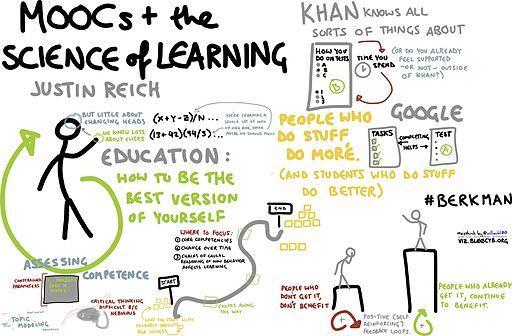 MOOCs + the
SCIENCE of LEARNING
JUSTIN REICH
BUT LITTLE ABOUT
CHANGING HEADS
WE KNOW LOTS
ABOUT CLICKS
(x+y-z)/n...
EDUCATION:
HOW TO BE THE
BEST VERSION
OF YOURSELF
WHERE TO FOCUS:
① CORE COMPETENCIES
② CHANGE OVER TIME
③ CHAINS OF CAUSAL
REASONING ON HOW BEHAVIOR
AFFECTS LEARNING
ASSESSING
COMPETENCE
CRITICAL THINKING
DIFFICULT B/C
NEBULOUS
TOPIC
MODELING
START
END
CHECKS ALONG
THE WAY
KHAN KNOWS ALL
SORTS OF THINGS ABOUT
HOW YOU
DO ON TESTS
A
B
C
B
TIME YOU
SPEND
(OR DO YOU ALREADY
FEEL SUPPORTED
-OR NOT- OUTSIDE
OF KHAN?)
PEOPLE WHO
DO STUFF
DO MORE.
(AND STUDENTS WHO DO STUFF
DO BETTER)
GOOGLE
TASKS
COMPLETING
HELPS
TEST
A
#BERKMAN
VIZ.BLOGCYB.ORG
PEOPLE WHO
DON'T GET IT,
DON'T BENEFIT
POSITIVE (SELF-
REINFORCING)
FEEDBACK LOOPS
PEOPLE WHO ALREADY
GET IT, CONTINUE
TO BENEFIT.